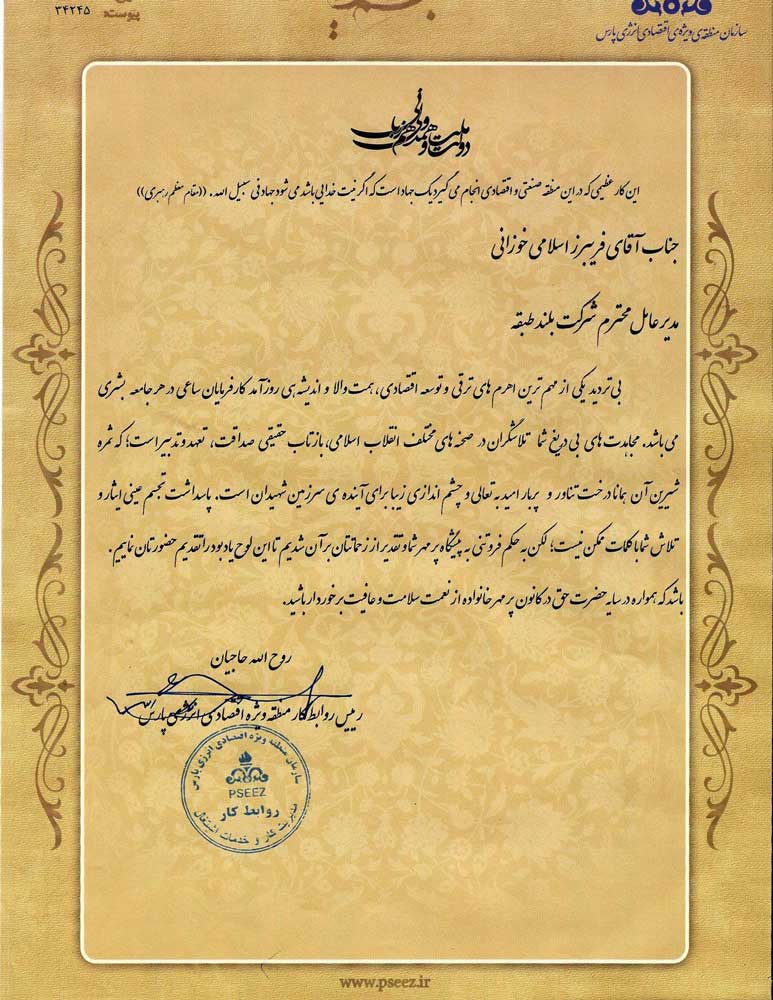 ۳۴۲۴۵
پیوست:
سازمان منطقه‌ی ویژه‌ی اقتصادی انرژی پارس
دولت و ملت، همدلی و همزبانی
این کار عظیمی که در این منطقه صنعتی و اقتصادی انجام می گیرد یک جهاد است که اگر نیت خدایی باشد می شود جهاد فی سبیل الله. ((مقام معظم رهبری))
جناب آقای فریبرز اسلامی خوزانی
مدیر عامل محترم شرکت بلند طبقه
بی تردید یکی از مهم ترین اهرم های ترقی و توسعه اقتصادی، همت والا و اندیشه ی روزآمد کارفرمایان ساعی در هر جامعه بشری
می باشد. مجاهدت های بی دریغ شما تلاشگران در صحنه های مختلف انقلاب اسلامی، بازتاب حقیقی صداقت، تعهد و تدبیر است؛ که ثمره
شیرین آن همانا درخت تناور و پربار امید به تعالی و چشم اندازی زیبا برای آینده ی سرزمین شهیدان است. پاسداشت تجسم عینی ایثار و
تلاش شما با کلمات ممکن نیست؛ لکن به حکم فروتنی به پیشگاه پر مهر شما و تقدیر از زحماتتان بر آن شدیم تا این لوح یادبود را تقدیم حضورتان نماییم.
باشد که همواره در سایه حضرت حق در کانون پر مهر خانواده از نعمت سلامت و عافیت برخوردار باشید.
روح الله حاجیان
رییس روابط کار منطقه ویژه اقتصادی انرژی پارس
سازمان منطقه ویژه اقتصادی انرژی پارس
PSEEZ
روابط کار
مدیریت کار و خدمات اشتغال
www.pseez.ir